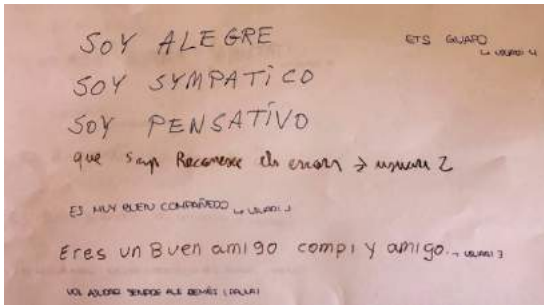 SOY ALEGRE
ETS GUAPO
↳ USUARI 4
SOY SYMPATICO
SOY PENSATIVO
que sap Reconeixe els errors → usuari 2
ES MUY BUEN COMPAÑERO ↳ USUARI 1
Eres un Buen amigo compi y amigo. → USUARI 3
VOL AJUDAR SEMPRE ALS DEMÉS (PAULA)